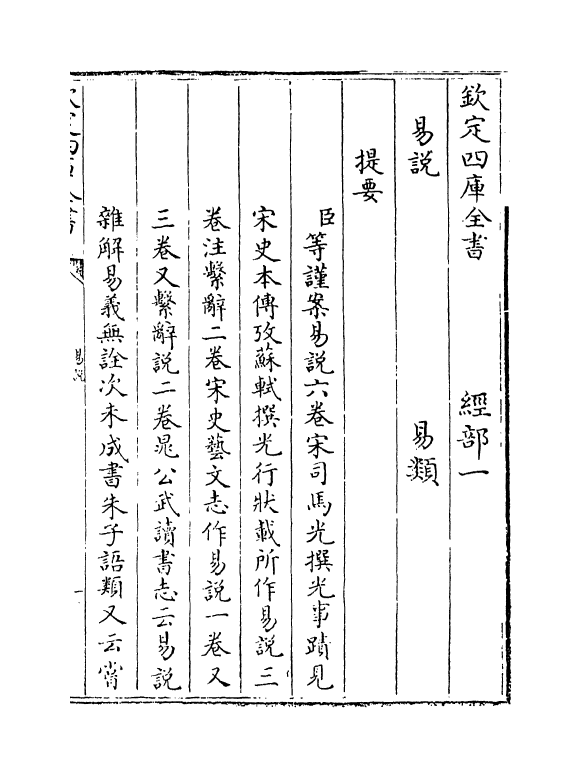 欽定四庫全書　經部一
易説　易類
提要
臣等謹案易說六卷宋司馬光撰光事蹟見
宋史本傳攷蘇軾撰光行狀載所作易說三
卷注繫辭二卷宋史藝文志作易說一卷又
三卷又繫辭說二卷晁公武讀書志云易說
雜解易義無詮次未成書朱子語類又云嘗
易說
一